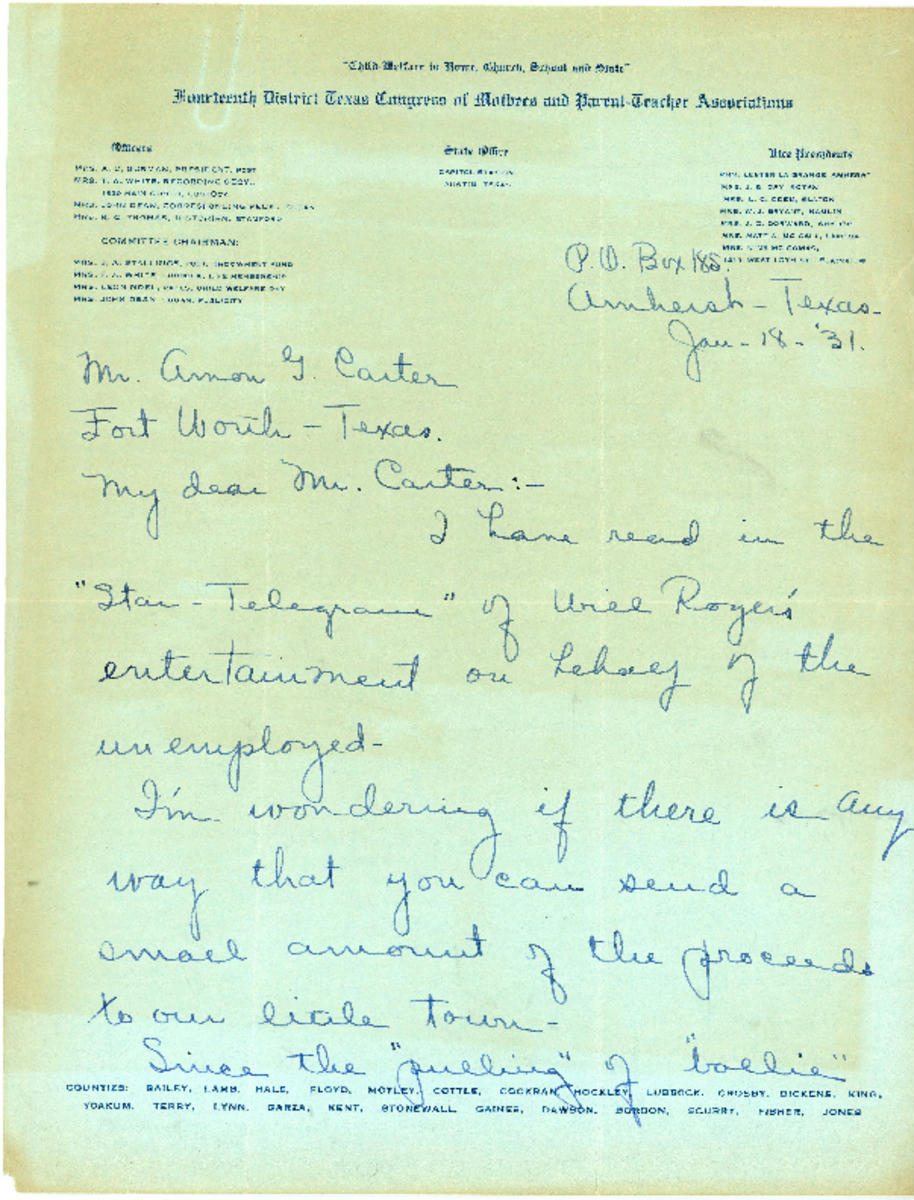 "Child Welfare in Home, Church, School and State"
Fourteenth District Texas Congress of Mothers and Parent-Teacher Associations
Officers
MRS. A. C. SURMAN, PRESIDENT, POST
MRS. T. A. WHITE, RECORDING SECY.,
MRS. JOHN DEAN, CORRESPONDING
MRS. R. C. THOMAS, HISTORIAN, STANFORD
COMMITTEE CHAIRMAN:
MRS. J. A. STALLINGS, ENDOWMENT FUND
MRS. T. A. WHITE LIFE MEMBERSHIP
MRS. LEON NOEL, CHILD WELFARE DAY
MRS. JOHN DEAN PUBLICITY
State Office
CAPITOL STATION
AUSTIN, TEXAS
Vice Presidents
MRS. LESTER LA GRANGE AMHERST
MRS. J. E. DAY, ROTAN
MRS. L. C. ODEM, SLATON
MRS. W. J. BRYANT, HAMLIN
MRS. J. D. DORWARD,
MRS.
MRS.
WEST 10TH ST.
P.O. Box 185.
Amherst - Texas -
Jan - 18 - '31.
Mr. Amon G. Carter
Fort Worth - Texas.
My dear Mr. Carter:-
I have read in the
"Star - Telegram" of Will Roger's
entertainment on behalf of the
unemployed -
I'm wondering if there is any
way that you can send a
small amount of the proceeds
to our little town -
Since the "pulling" of "bollie"
COUNTIES: BAILEY, LAMB, HALE, FLOYD, MOTLEY, COTTLE, COCKRAN, HOCKLEY, LUBBOCK, CROSBY, DICKENS, KING,
YOAKUM, TERRY, LYNN, GARZA, KENT, STONEWALL, GAINES, DAWSON, BORDON, SCURRY, FISHER, JONES